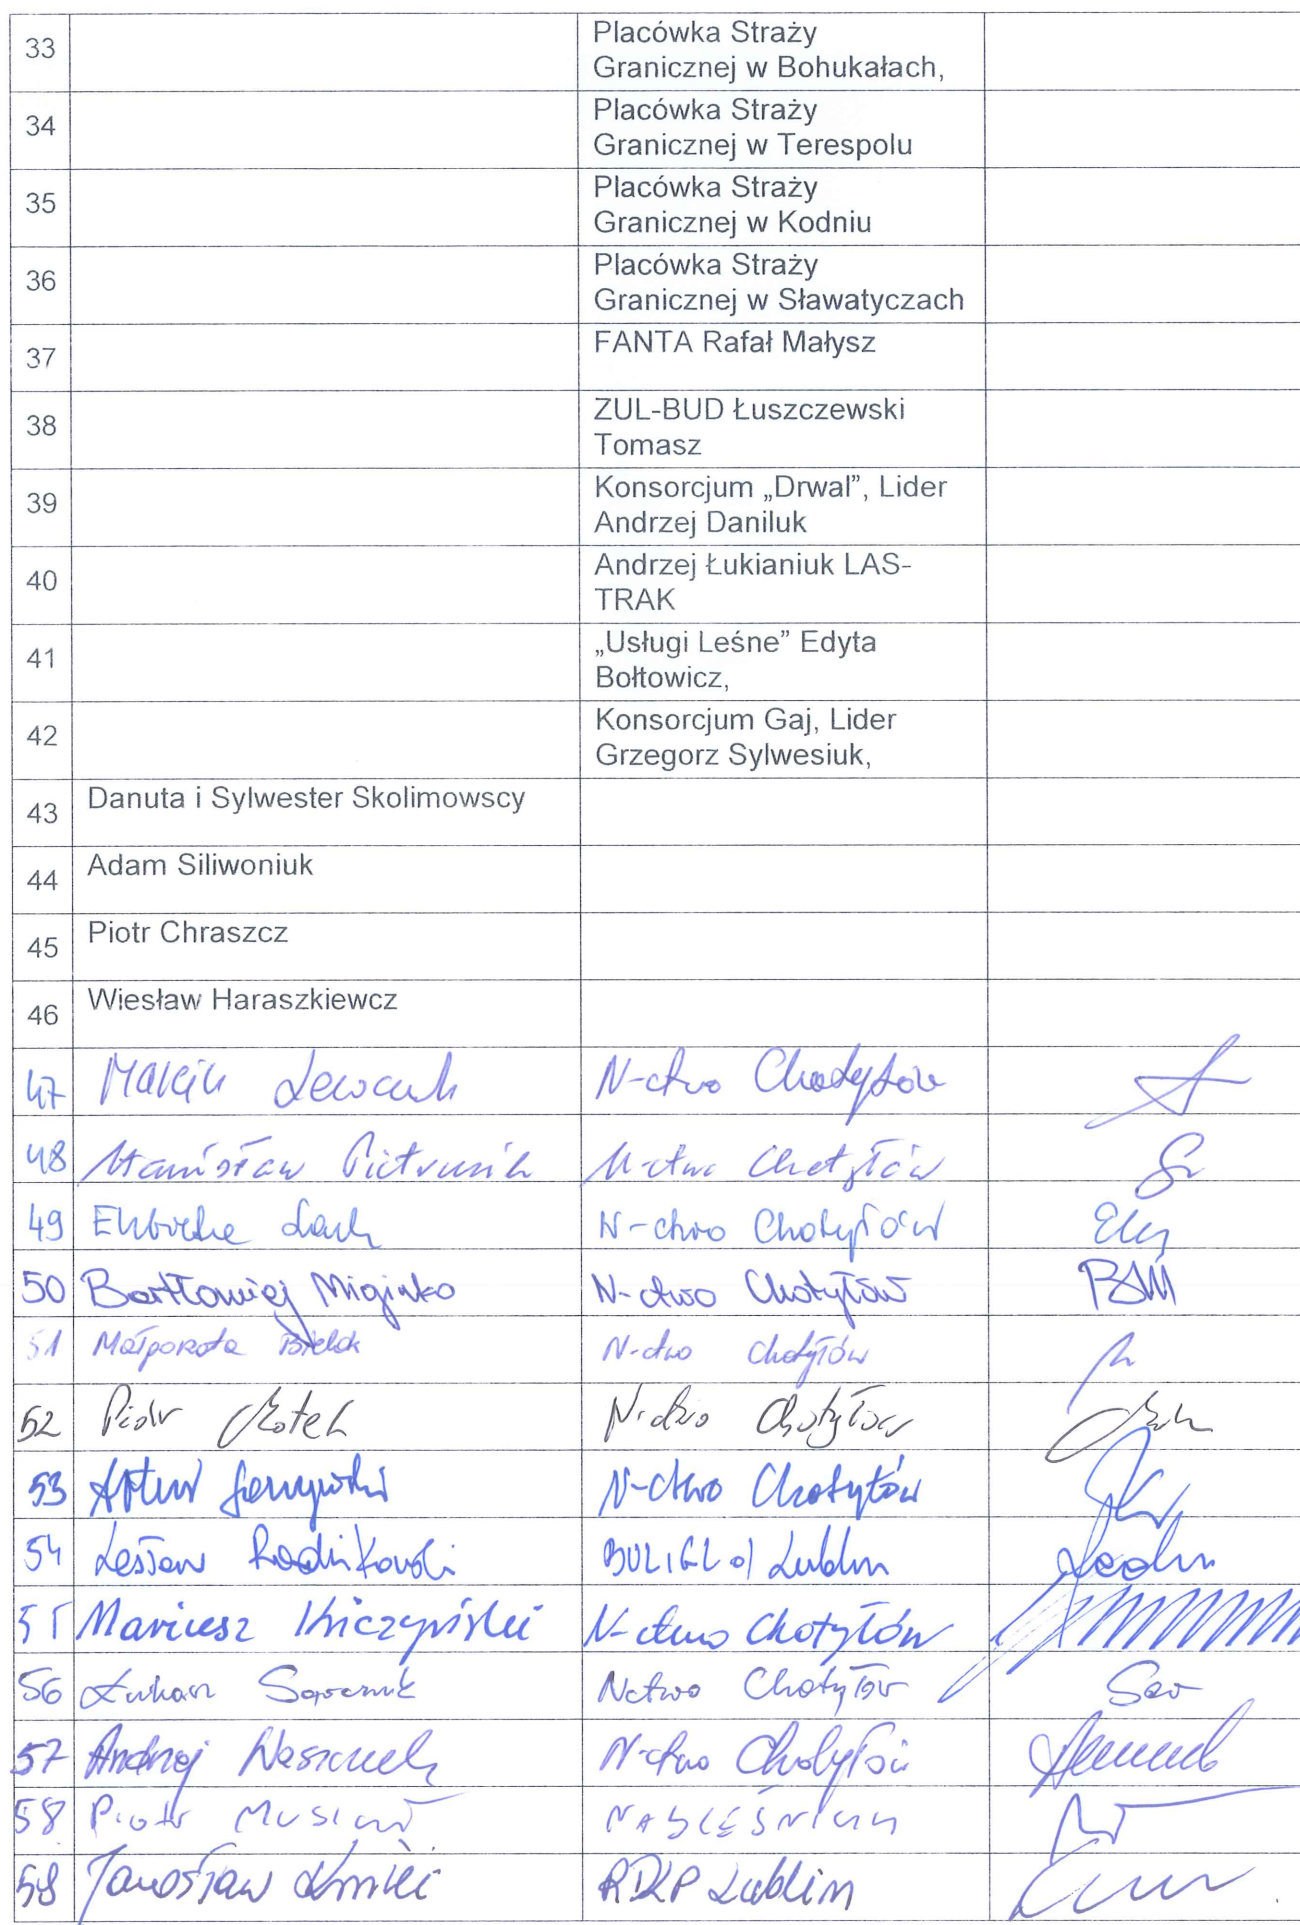 33 Placówka Straży
Granicznej w Bohukałach,
34 Placówka Straży
Granicznej w Terespolu
35 Placówka Straży
Granicznej w Kodniu
36 Placówka Straży
Granicznej w Sławatyczach
37 FANTA Rafał Małysz
38 ZUL-BUD Łuszczewski
Tomasz
39 Konsorcjum „Drwal”, Lider
Andrzej Daniluk
40 Andrzej Łukianiuk LAS-
TRAK
41 „Usługi Leśne” Edyta
Bołtowicz,
42 Konsorcjum Gaj, Lider
Grzegorz Sylwesiuk,
43 Danuta i Sylwester Skolimowscy
44 Adam Siliwoniuk
45 Piotr Chraszcz
46 Wiesław Haraszkiewcz
47 Marcin N-ctwo Chotyłów
48 Stanisław N-ctwo Chotyłów
49 Elżbieta N-ctwo Chotyłów
50 Bartłomiej N-ctwo Chotyłów
51 Małgorzata N-ctwo Chotyłów
52 Piotr N-ctwo Chotyłów
53 Artur N-ctwo Chotyłów
54 Lesław BULIGL o/ Lublin
55 Mariusz N-ctwo Chotyłów
56 Łukasz Nctwo Chotyłów
57 Andrzej N-ctwo Chotyłów
58 Piotr
58 Jarosław RDLP Lublin